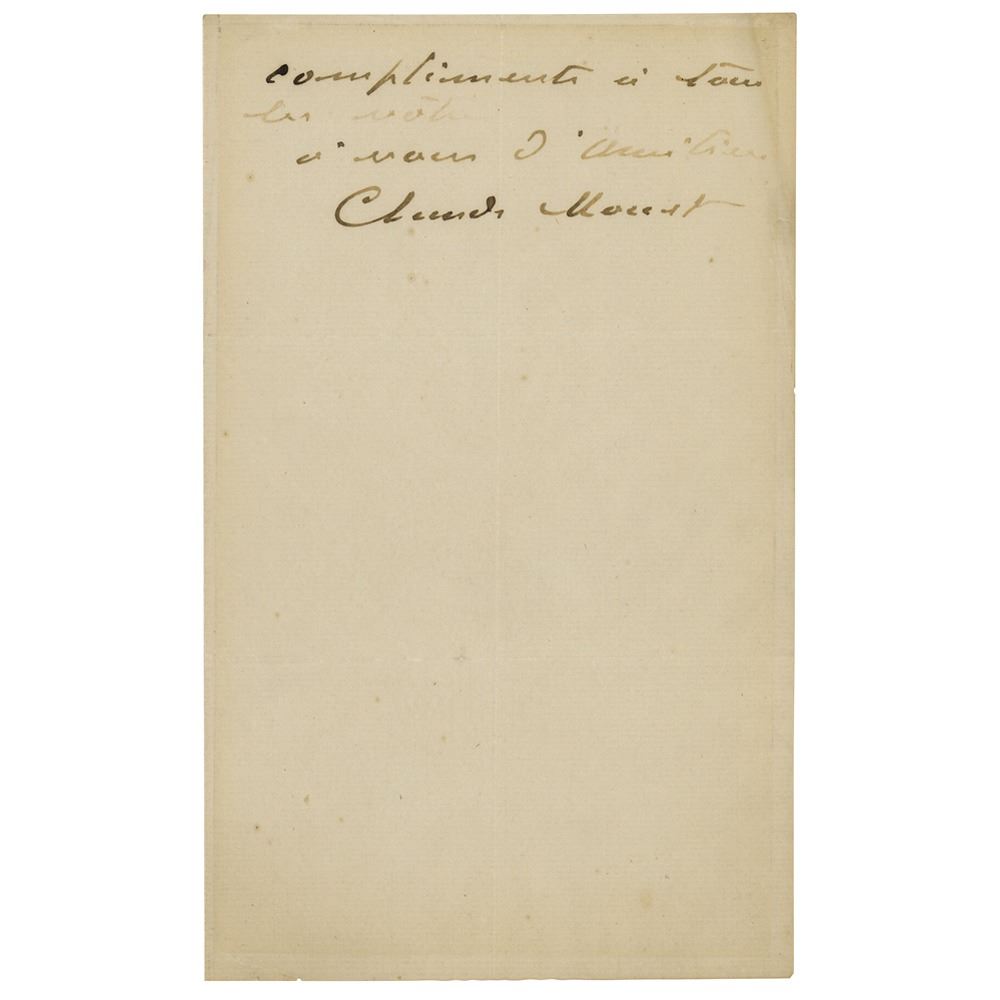 compliments à tous
les vôtres
à vous d'amitiés
Claude Monet